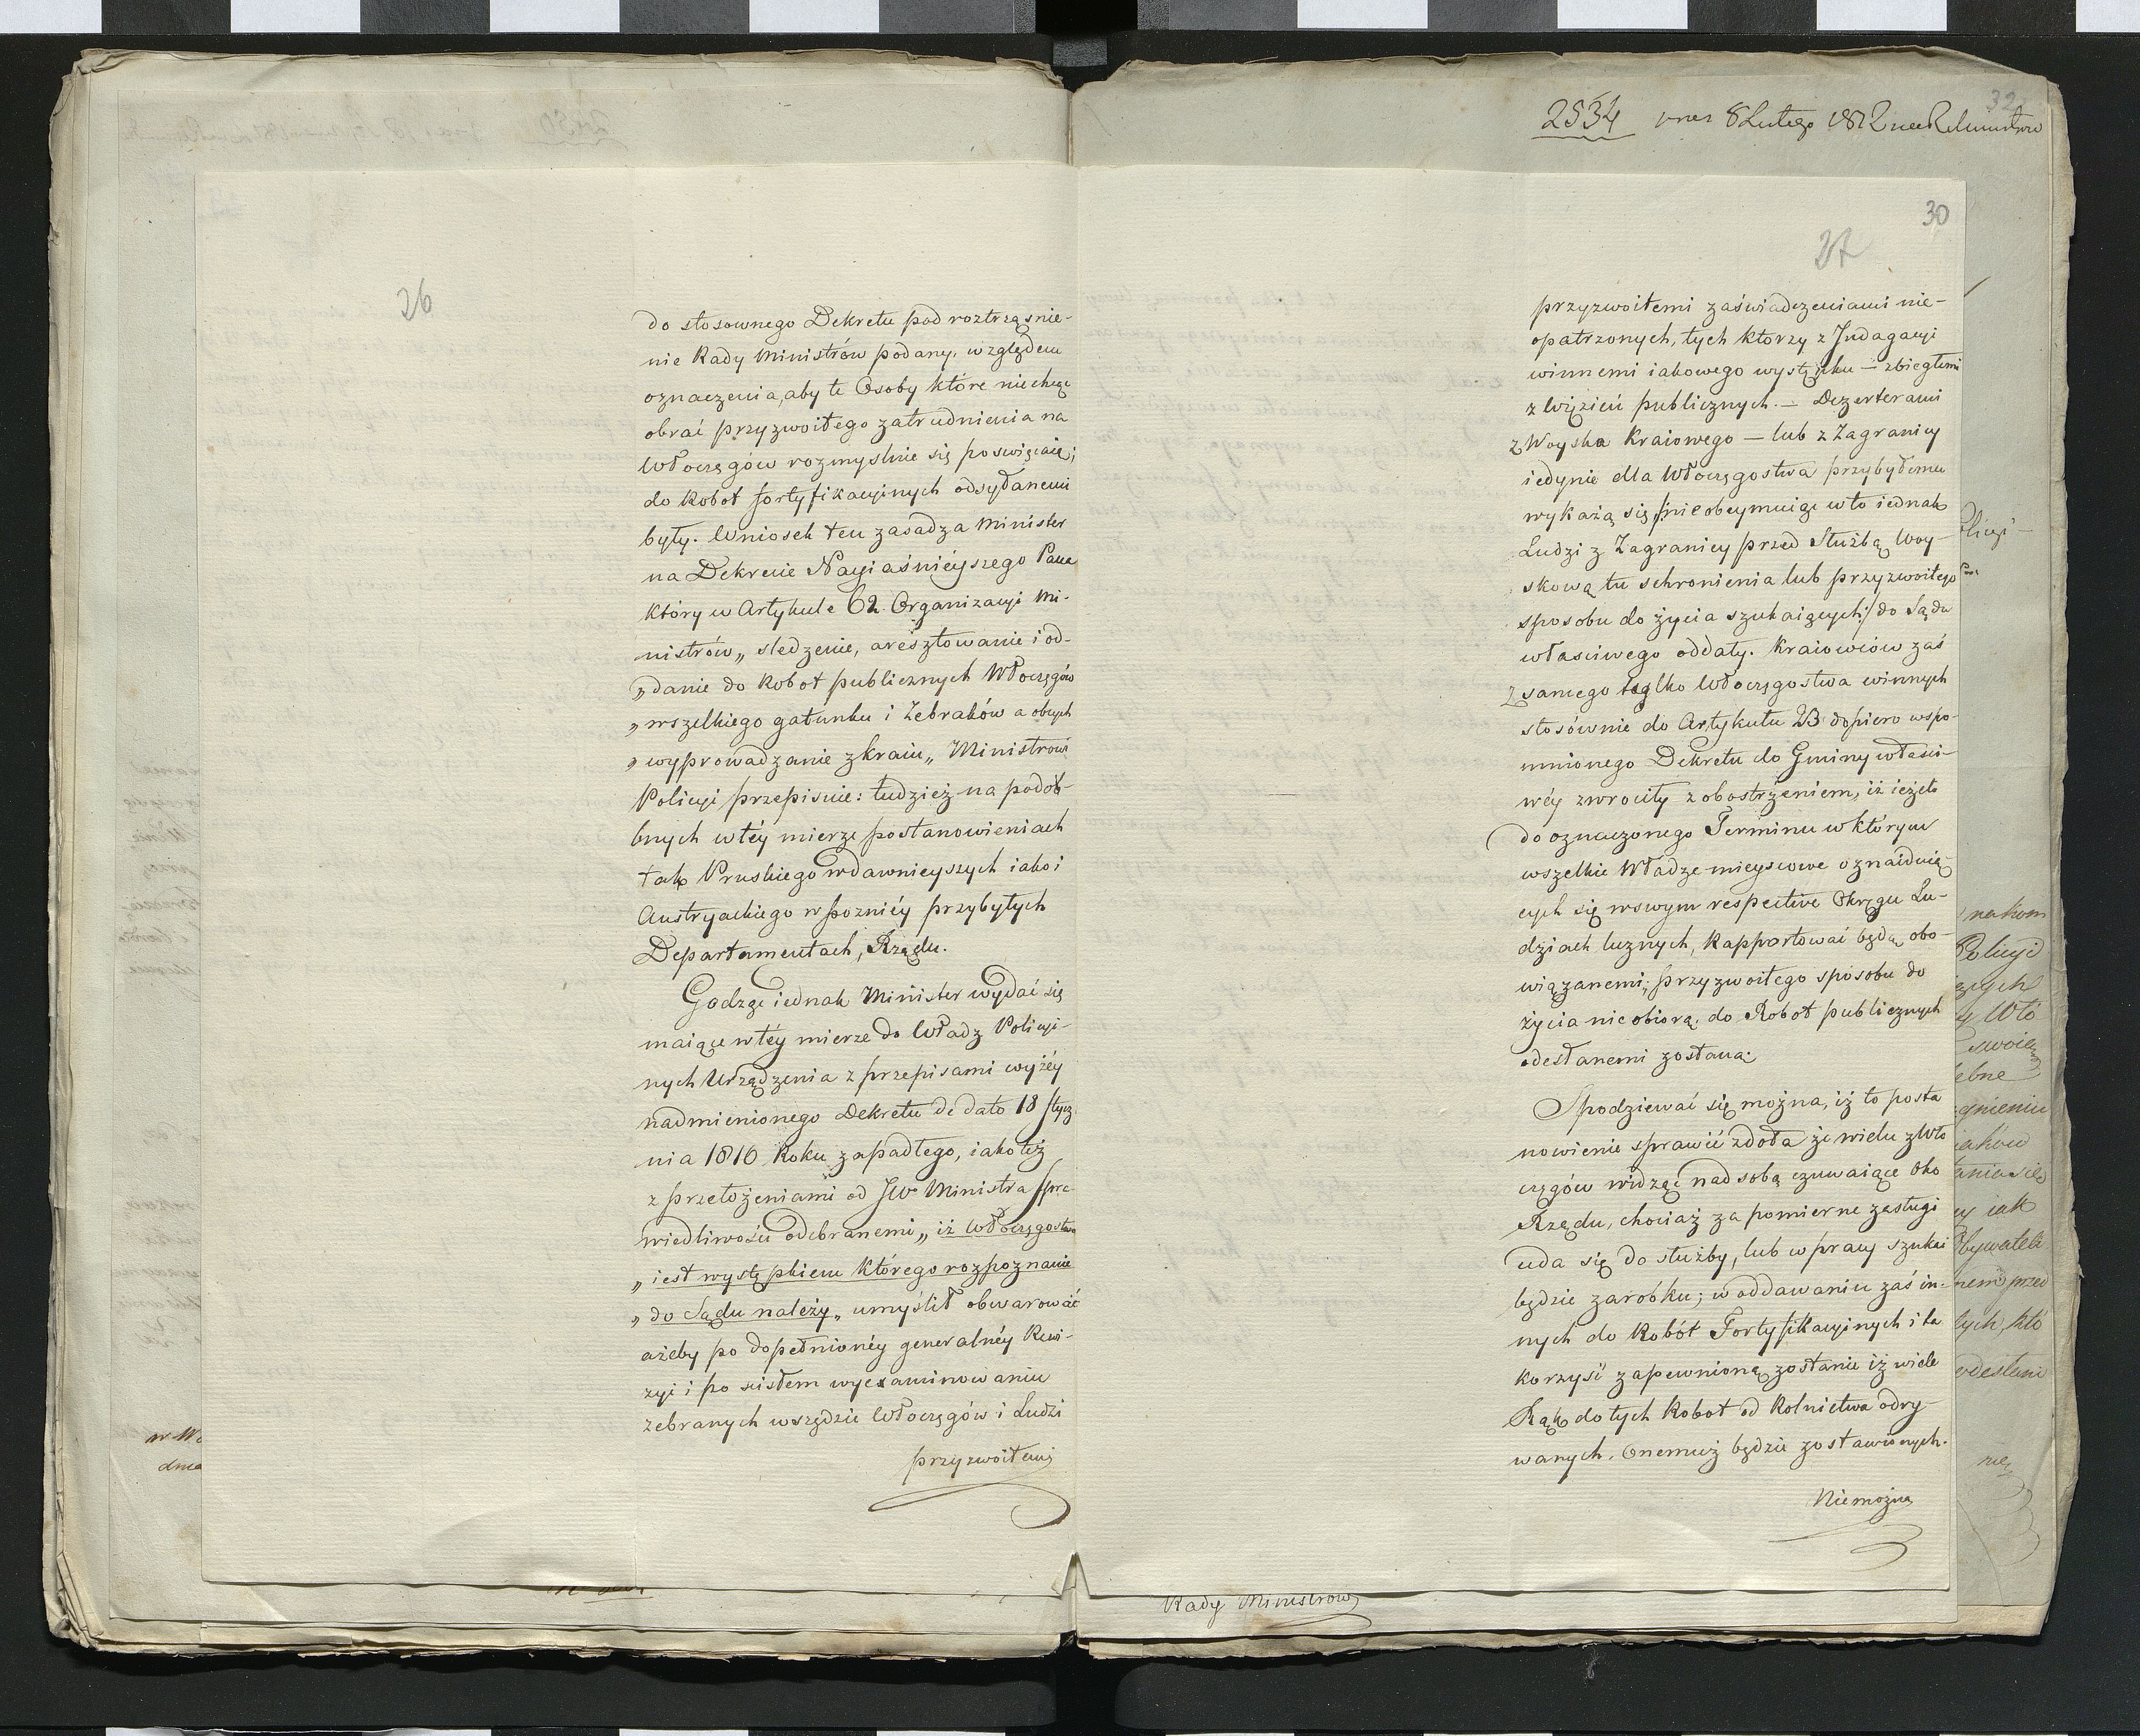 26
do stosownego Dekretu pod roztrząśnie-
nie Rady Ministrów podany, względem
oznaczenia, aby te Osoby które niechcąc
obrać przyzwoitego zatrudnienia na
Włoczęgów rozmyslnie się poswięcaią;
do Robot fortyfikacyinych odsyłanemi
były. Wniosek ten zasadza Minister
na Dekrecie Nayiaśnieyszego Pana
który w Artykule 62. Organizacyi Mi-
nistrów „ sledzenie, aresztowanie i od-
„ danie do Robot publicznych Włoczęgów
„ wszelkiego gatunku i Zebraków a obcych
„ wyprowadzanie z kraiu „ Ministrowi
Policyi przepisuie: tudzież na podob-
bnych w téy mierze postanowieniach
tak Pruskiego w dawnieyszych iako i
Austryackiego w poźniéy przybyłych
Departamentach, Rządu.
Godząc iednak Minister wydać się
maiące w téy mierze do Władz Policyi-
nych Urządzenia z przepisami wyżéy
nadmienionego Dekretu de dato 18 Stycz
nia 1810 Roku zapadłego, iako też
z przełożeniami od JW Ministra Spra-
wiedliwości odebranemi „ iż Włoczęgostwo
„ iest występkiem którego rozpoznanie
„ do Sądu należy „ umyślił obwarować
ażeby po dopełnionéy generalnéy Rewi-
zyi i po scisłem wyexaminowaniu
zebranych wszędzie Włoczęgów i Ludzi
przyzwoitemi
2534 8 Lutego 1812
32
30
27
przyzwoitemi zaświadczeniami nie-
opatrzonych, tych ktorzy z Indagacyi
winnemi iakowego występku — zbiegłemi
z Więzień publicznych. — Dezerterami
z Woyska Kraiowego — lub z Zagranicy
iedynie dla Włoczęgostwa przybyłemu
wykażą się /:nieobeymuiąc w to iednak
Ludzi z Zagranicy przed Służbą Woy-
skową tu schronienia lub przyzwoitego
sposobu do życia szukaiących:/ do Sądu
własciwego oddały. Kraiowców zaś
z samego tylko Włoczęgostwa winnych
stosównie do Artykułu 23 dopiero wspo-
mnionego Dekretu do Gminy własci-
wéy zwrociły z obostrzeniem, iż ieżeli
do oznaczonego Terminu w którym
wszelkie Władze mieyscowe oznaiduią-
cych się w swym respective Okręgu Lu-
dziach luznych, Rapportować będą obo-
wiązanemi; przyzwoitego sposobu do
życia nie obiorą. do Robot publicznych
odesłanemi zostaną.
Spodziewać się można, iż to posta
nowienie sprawić zdoła że wielu z Wło
częgów widząc nad sobą czuwaiące Oko
Rządu, chociaż za pomierne zasługi
uda się do służby, lub w pracy szukać
będzie zarobku; w oddawaniu zaś in-
nych do Robót Fortyfikacyinych i ta
korzyść zapewnioną zostanie iż wiele
Rąk do tych Robot od Rolnictwa odry-
wanych. Onemuż będzie zostawionych.
Niemożna
nakom
Policyi
Rady Ministrow